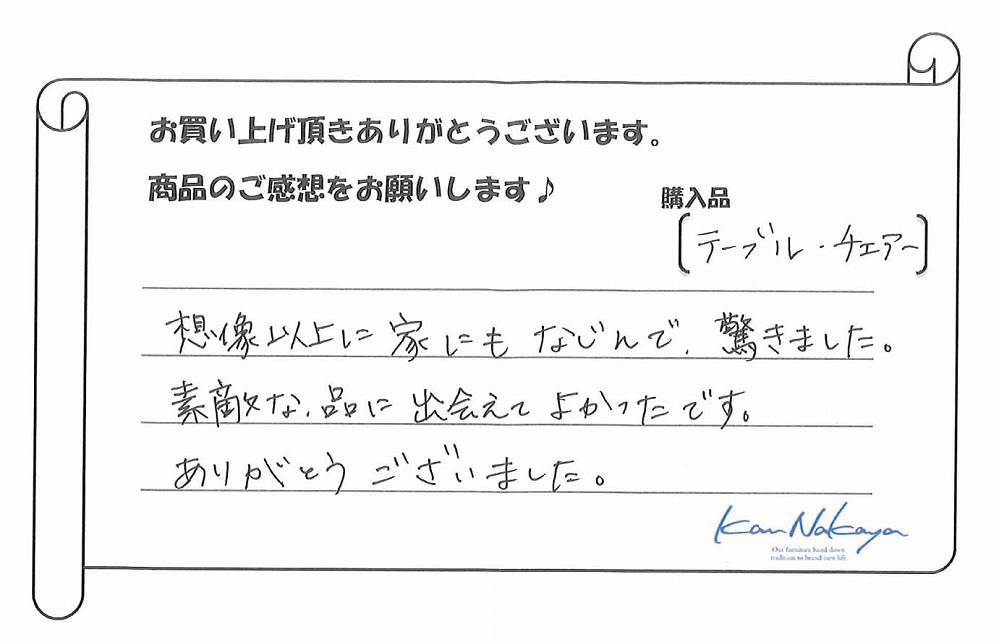 お買い上げ頂きありがとうございます。
商品のご感想をお願いします♪
購入品
〔テーブル・チェアー〕
想像以上に家にもなじんで、驚きました。
素敵な、品に出会えてよかったです。
ありがとうございました。
Kan Nakaya
Our furniture hand down
tradition to brand-new life.